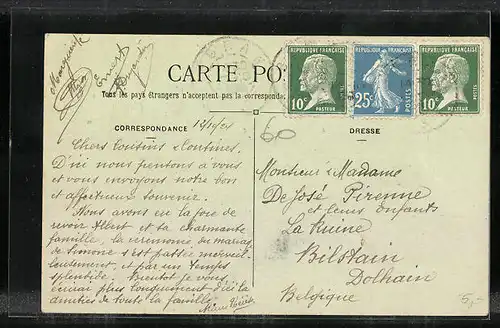 CARTE PO
Tous les pays étrangers n'acceptent pas la correspondan
RÉPUBLIQUE FRANÇAISE
10c
PASTEUR
RÉPUBLIQUE FRANÇAISE
25c
RÉPUBLIQUE FRANÇAISE
10c
PASTEUR
Ernest
CORRESPONDANCE
DRESSE
60
Chers Cousins & Cousines.
D'ici nous pensons à vous
et vous envoyons notre bon
et affectueux souvenir.
Nous avons eu la joie de
revoir Albert et sa charmante
famille, la cérémonie du mariage
de Simone s'est passée merveil-
leusement, et par un temps
splendide. Bientôt je vous
écrirai plus longuement d'ici la
amitiés de toute la famille
Monsieur & Madame
De José Pirenne
et leurs enfants
La Ruine
Bilstain
Dolhain
Belgique
5,-